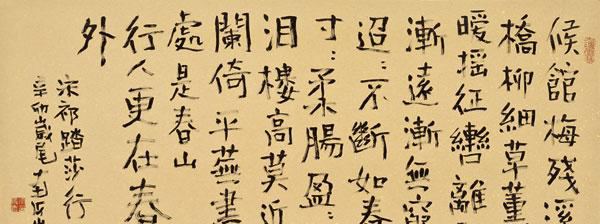 候館梅殘溪
橋柳細草薰
暖搖征轡離
漸遠漸無窮
迢:不斷如春
寸:柔腸盈:
泪樓高莫近
闌倚平蕪盡
處是春山
行人更在春
外
宋祁踏莎行
辛卯歲尾